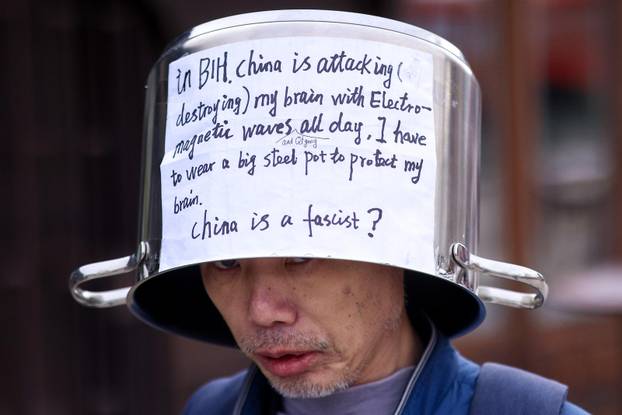 in BIH. China is attacking (
destroying) my brain with Electro-
magnetic waves all day. I have
and Qigong
to wear a big steel pot to protect my
brain.
China is a fascist?